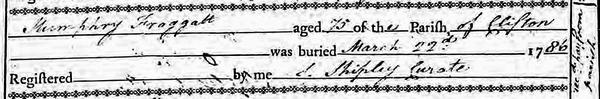 Humphry Froggatt aged 75 of the Parish of Clifton
was buried March 22d 1786
Registered by me J. Shipley Curate